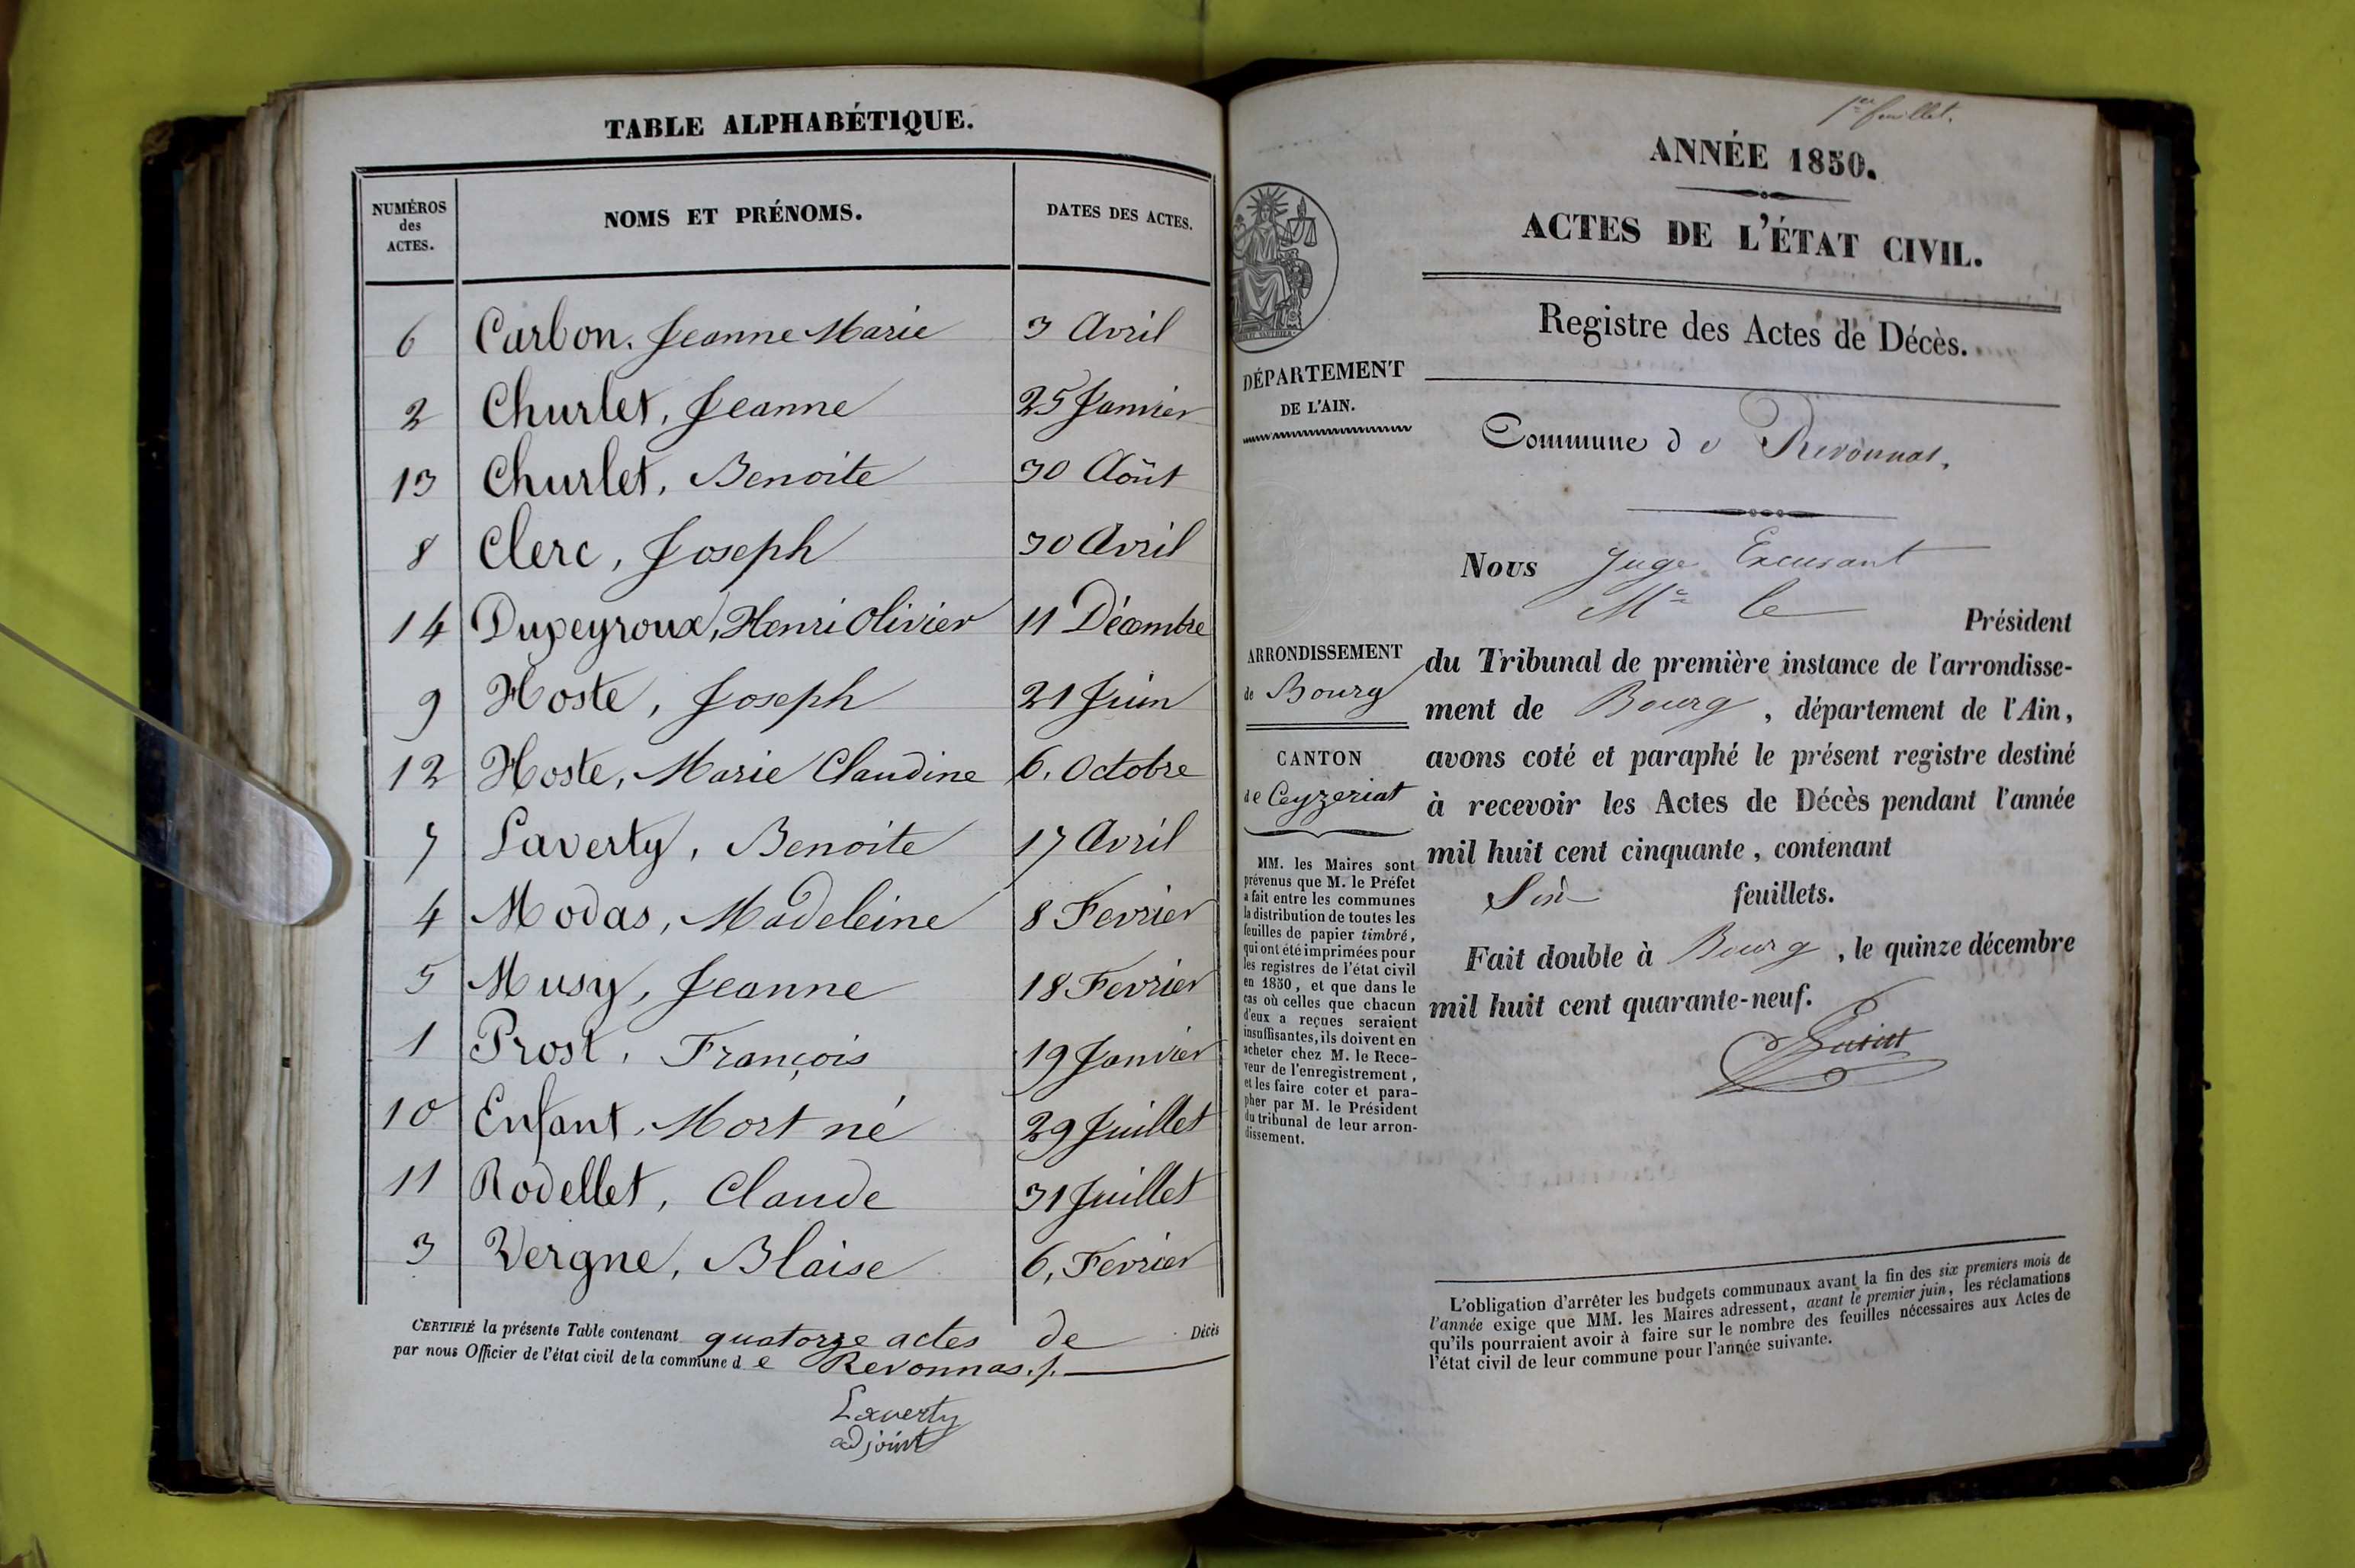 TABLE ALPHABÉTIQUE.
NUMÉROS des ACTES. NOMS ET PRÉNOMS. DATES DES ACTES.
6 Carbon, Jeanne Marie 3 Avril
2 Churlet, Jeanne 25 Janvier
13 Churlet, Benoite 30 Août
8 Clerc, Joseph 30 Avril
14 Dupeyroux, Henri Olivier 11 Décembre
9 Hoste, Joseph 21 Juin
12 Hoste, Marie Claudine 6, Octobre
7 Laverty, Benoite 17 Avril
4 Modas, Madeleine 8 Fevrier
5 Musy, Jeanne 18 Fevrier
1 Prost, François 19 Janvier
10 Enfant, Mort né 29 Juillet
11 Rodellet, Claude 31 Juillet
3 Vergne, Blaise 6, Fevrier
CERTIFIÉ la présente Table contenant quatorze actes de Décès
par nous Officier de l'état civil de la commune d e Revonnas./.
Laverty
adjoint
1er feuillet.
ANNÉE 1850.
ACTES DE L'ÉTAT CIVIL.
Registre des Actes de Décès.
DÉPARTEMENT
DE L'AIN.
Commune de Revonnas.
ARRONDISSEMENT
de Bourg
CANTON
de Ceyzeriat
MM. les Maires sont
prévenus que M. le Préfet
a fait entre les communes
la distribution de toutes les
feuilles de papier timbré,
qui ont été imprimées pour
les registres de l'état civil
en 1850, et que dans le
cas où celles que chacun
d'eux a reçues seraient
insuffisantes, ils doivent en
acheter chez M. le Rece-
veur de l'enregistrement,
et les faire coter et para-
pher par M. le Président
du tribunal de leur arron-
dissement.
Nous Juge Excusant
Mr le
Président
du Tribunal de première instance de l'arrondisse-
ment de Bourg, département de l'Ain,
avons coté et paraphé le présent registre destiné
à recevoir les Actes de Décès pendant l'année
mil huit cent cinquante, contenant
feuillets.
Fait double à Bourg, le quinze décembre
mil huit cent quarante-neuf.
L'obligation d'arrêter les budgets communaux avant la fin des six premiers mois de
l'année exige que MM. les Maires adressent, avant le premier juin, les réclamations
qu'ils pourraient avoir à faire sur le nombre des feuilles nécessaires aux Actes de
l'état civil de leur commune pour l'année suivante.